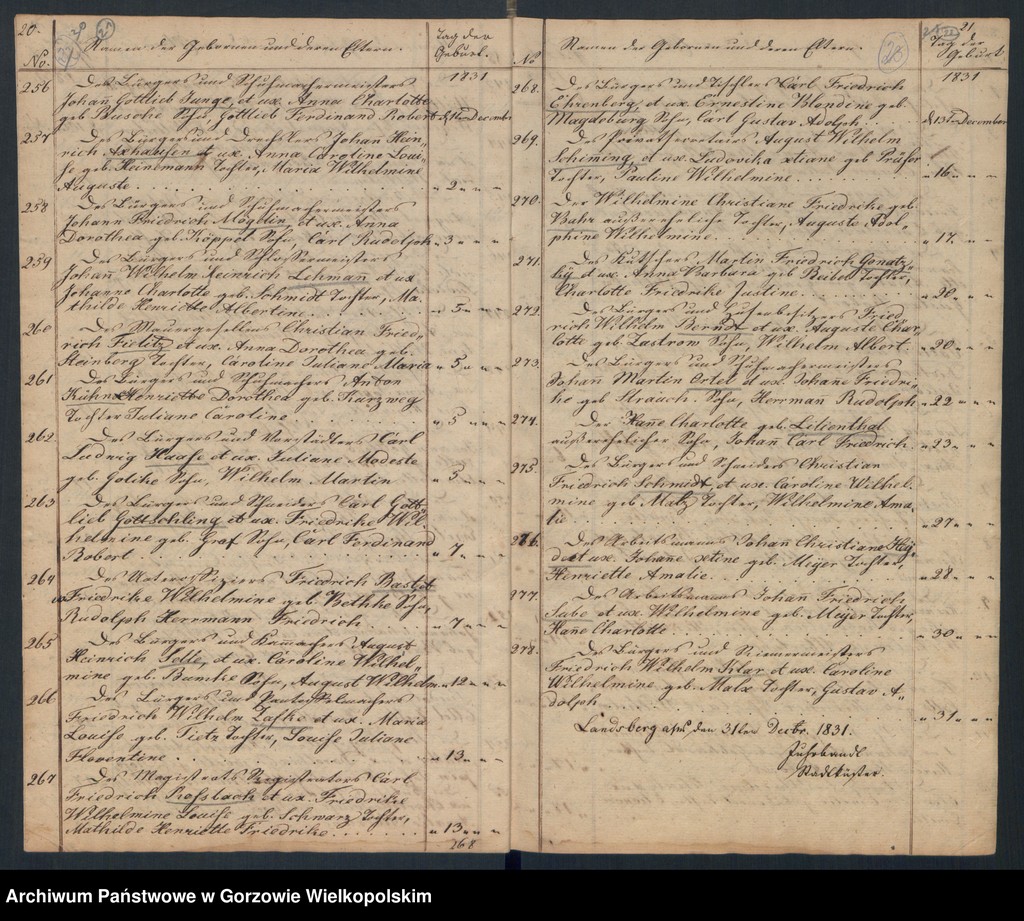 20.
Namen der Gebornen und deren Eltern.
Tag der
Geburt.
No.
1831
256
Des Bürgers und Schuhmachermeisters
Johañ Gottlieb Junge, et ux. Anna Charlotte
geb Busche Sohn, Gottlieb Ferdinand Robert d 1ten December
257
Des Bürgers und Drechsler Johan Hein„
rich Axhausen et ux. Anna Caroline Loui„
se geb. Heinemann Tochter, Maria Wilhelmine
Auguste „ 2 „ „
258
Des Bürgers und Schuhmachermeisters
Johann Friedrich Mögelin et ux. Anna
Dorothea geb. Köppel Sohn, Carl Rudolph „ 3 „ „
259
Des Bürgers und Schlossermeisters
Johañ Wilhelm Heinrich Lehman et ux
Johanne Charlotte geb. Schmidt Tochter, Ma„
thilde Henriette Albertine „ 5 „ „
260
Des Mauergesellens Christian Fried„
rich Fielitz et ux. Anna Dorothea geb.
Steinberg Tochter, Caroline Juliane Maria „ 5 „ „
261
Des Bürgers und Schuhmachers Anton
Kühn Henriette Dorothea geb. Kurzweg
Tochter Juliane Caroline „ 5 „ „
262
Des Bürgers und Vorstädters Carl
Ludwig Haase et ux. Juliane Modeste
geb. Golcke Sohn, Wilhelm Martin „ 5 „ „
263
Des Bürgers und Schneider Carl Gott„
lieb Gottschling et ux. Friedrike Wil„
helmine geb. Graf Sohn, Carl Ferdinand
Robert „ 7 „ „
264
Des Unteroffiziers Friedrich
Friedrike Wilhelmine geb. Bethke Sohn,
Rudolph Herrmann Friedrich „ 7 „ „
265
Des Bürgers und August
Heinrich Selle, et ux. Caroline Wilhel„
mine geb. Bumke Sohn, August Wilhelm „ 12 „ „
266
Des Bürgers und Pantoffelmachers
Friedrich Wilhelm Zafke et ux. Maria
Louise geb. Tietz Tochter, Louise Juliane
Florentine „ 13 „ „
267
Des Magistrats Registrators Carl
Friedrich et ux. Friedrike
Wilhelmine Louise geb. Schwarz Tochter,
Mathilde Henriette Friedrike „ 13 „ „
268
21
Namen der Gebornen und deren Eltern.
Tag der
Geburt.
No
1831
268.
Des Bürgers und Tischler Carl Friedrich
Ehrenberg, et ux. Ernestine Blondine geb.
Magdoburg Sohn, Carl Gustav Adolph d 13ten December
269.
Des Privatsecretairs August Wilhelm
Schiming, et ux. Ludovika xtiane geb
Tochter, Pauline Wilhelmine „ 16 „ „
270.
Der Wilhelmine Christiane Friedricke geb.
Bahr außereheliche Tochter, Auguste Adol„
phine Wilhelmine „ 17 „ „
271.
Des Kutschers Martin Friedrich Gonatz„
ky et ux. Anna Barbara geb Tochter,
Charlotte Friedrike Justine „ 20 „ „
272.
Des Bürgers und Hufenbesitzers Fried„
rich Wilhelm Berndt et ux. Auguste Char„
lotte geb Zastrow Sohn, Wilhelm Albert „ 20 „ „
273.
Des Bürgers und Schuhmachermeisters
Johañ Martin Ortel et ux. Johañe Friedri„
ke geb Strauch Sohn, Herrman Rudolph „ 22 „ „
274.
Der Hañe Charlotte geb. Lilienthal
außerehelicher Sohn, Johañ Carl Friedrich „ 23 „ „
275.
Des Bürgers und Schneiders Christian
Friedrich Schmidt, et ux. Caroline Wilhel„
mine geb. Matz Tochter, Wilhelmine Ama„
lie „ 27 „ „
276.
Des Arbeitsmanns Johañ Christian
et ux. Johañe xtine geb. Meÿer Tochter,
Henriette Amalie „ 28 „ „
277.
Des Arbeitsmanns Johan Friedrich
et ux. Wilhelmine geb. Meÿer Tochter,
Hañe Charlotte „ 30 „ „
278.
Des Bürgers und Riemermeisters
Friedrich Wilhelm Klar et ux. Caroline
Wilhelmine geb. Malx Tochter, Gustav A„
dolph „ 31 „ „
Landsberg a/W den 31ten Decbr. 1831.
Fuhrbandl
Stadtküster.
Archiwum Państwowe w Gorzowie Wielkopolskim